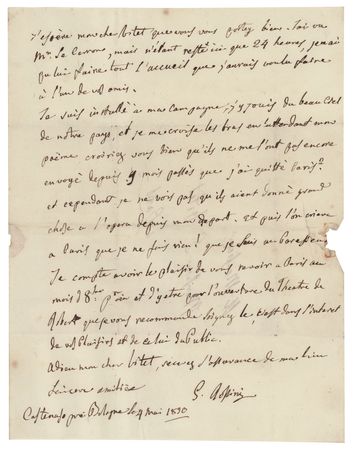 J'espère mon cher Vitet que vous vous portez bien. J'ai vu
Mr. Le Cerons, mais n'étant resté ici que 24 heures, je n'ai
pu lui faire tout l'accueil que j'aurais voulu faire
à l'un de vos amis.
Je suis installé à ma Campagne, j'y jouis du beau Ciel
de notre pays et je me croise les bras en attendant mon
poëme croiriez vous bien qu'ils ne me l'ont pas encore
envoyé depuis 9 mois passés que j'ai quitté Paris?
et cependant je ne vois pas qu'ils aient donné grand
chose à l'opera depuis mon départ. et puis l'on criera
à Paris que je ne fais rien! que je suis un paresseux
Je compte avoir le plaisir de vous revoir à Paris au
mois d'8bre pour l'ouverture du Theatre
que je vous recommande Soignez le c'est dans l'interet
de vos plaisirs et de celui du Public.
Adieu mon cher Vitet, recevez l'assurance de ma bien
sincere amitiée
G. Rossini
Castenaso près Bologne le 4 mai 1830